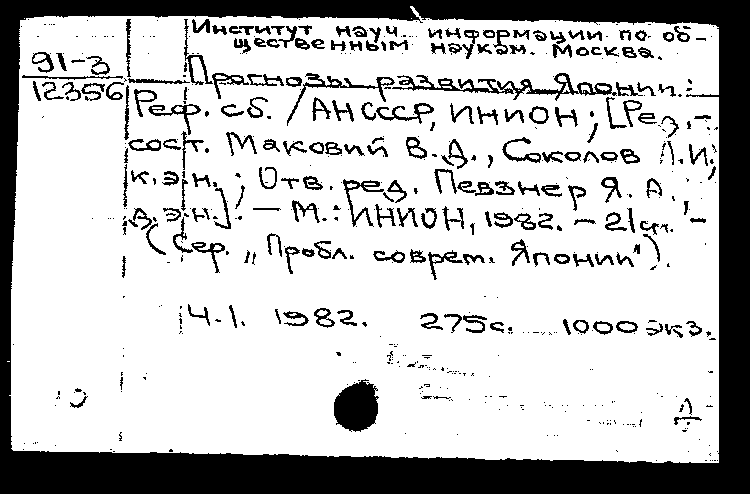 Институт науч. информации по об-
щественным наукам. Москва.
91-3
12356
Прогнозы развития Японии:
Реф. сб. / АНСССР, ИНИОН; [Ред.-
сост. Маковий В.Д., Соколов А.И.,
к.э.н.; Отв. ред. Певзнер Я. А.,
д.э.н.]. — М.: ИНИОН, 1982. — 21см. —
(Сер. „Пробл. соврем. Японии").
Ч.1. 1982. 275с. 1000 экз.